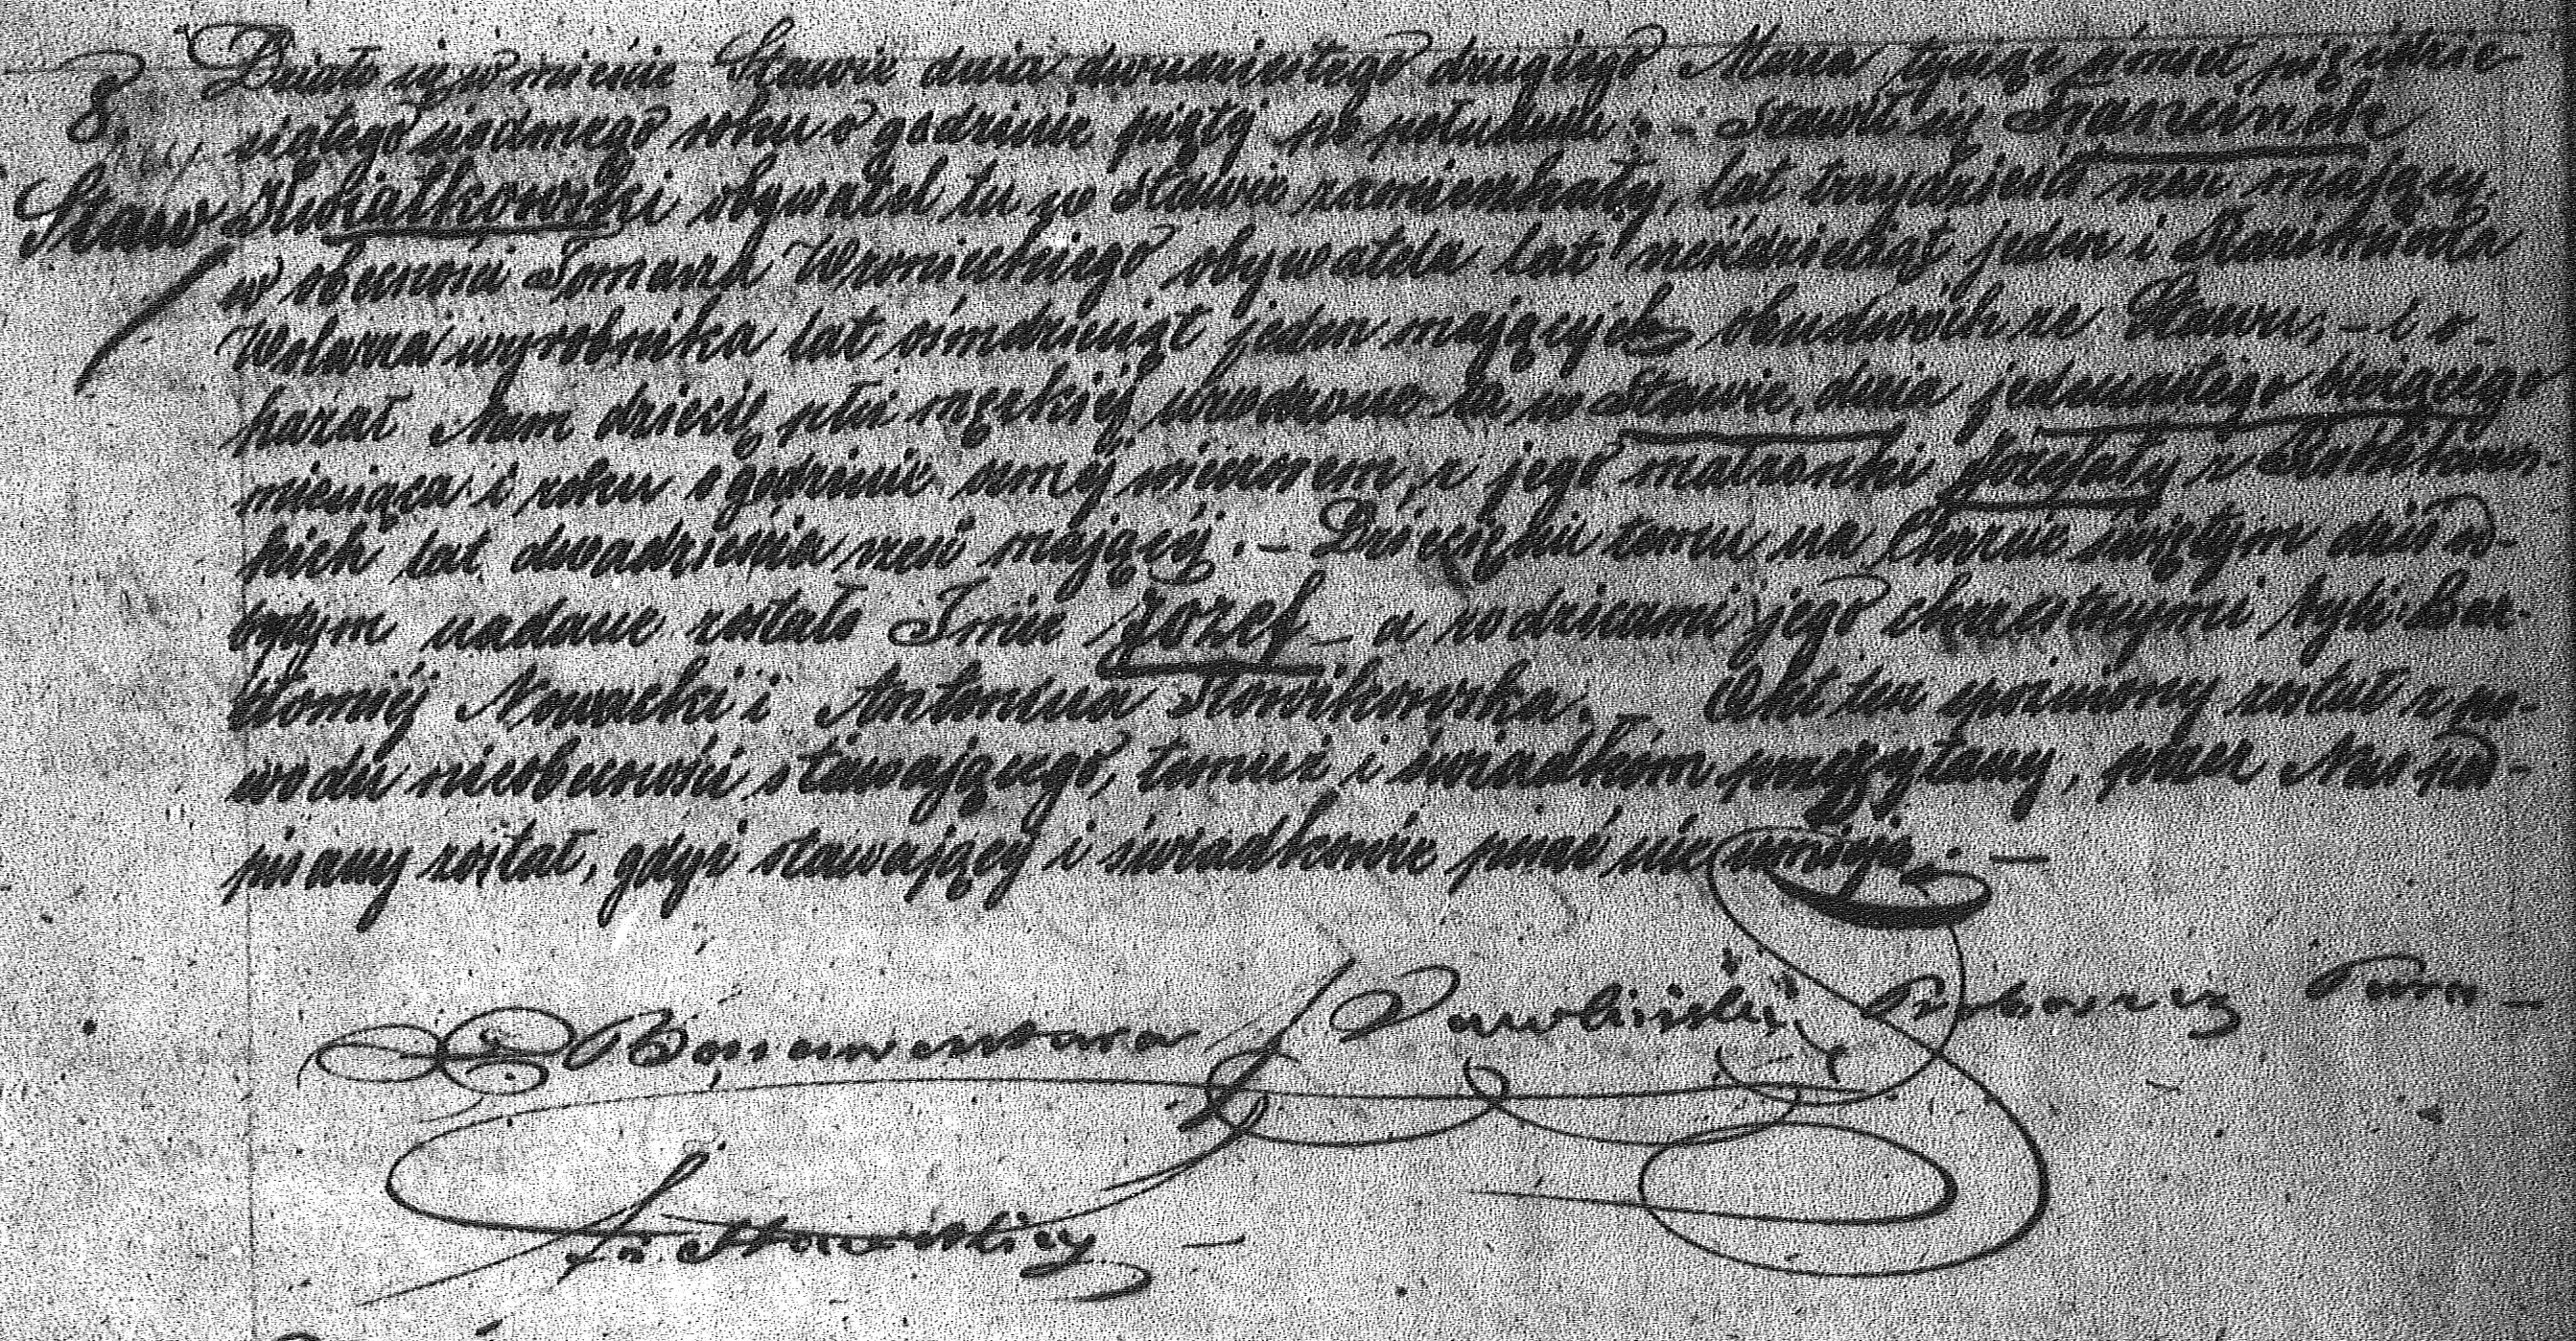 8.
Staw
Działo się w mieście Stawie dnia dwudziestego drugiego Marca tysiąc ośmset pięćdzie
siątego siódmego roku o godzinie piąty po południu. – Stawił się Franciszek
Kwiatkowski obywatel, tu w Stawie zamieszkały, lat trzydzieści mający,
w obecności Tomasza Wronieckiego obywatela lat jeden i Stanisława
Wolarza wyrobnika lat ośmdziesiąt jeden mających obudwóch ze Stawu, – i o-
kazał Nam dziecię płci męzkiéj, urodzone tu w Stawie, dnia jedenastego bieżącego
miesiąca i roku o godzinie wieczorem, z jego małżonki Jozefaty z
kich lat dwadzieścia sześć mającéj. – Dzieciątku temu na Chrzcie świętym dziś od-
bytym nadane zostało Imie Józef – a rodzicami jego chrzestnymi byli Bar-
tłomiéj Nowacki i Antonina Słowikowska. Akt ten spóźniony został z po-
wodu nieobecności stawającego, temuż i świadkom przeczytany, przez Nas pod-
pisany został, gdyż stawający i świadkowie pisać nie umieją. –
X Bonawentura Pawliński Proboszcz Para-
fii Stawskiey –